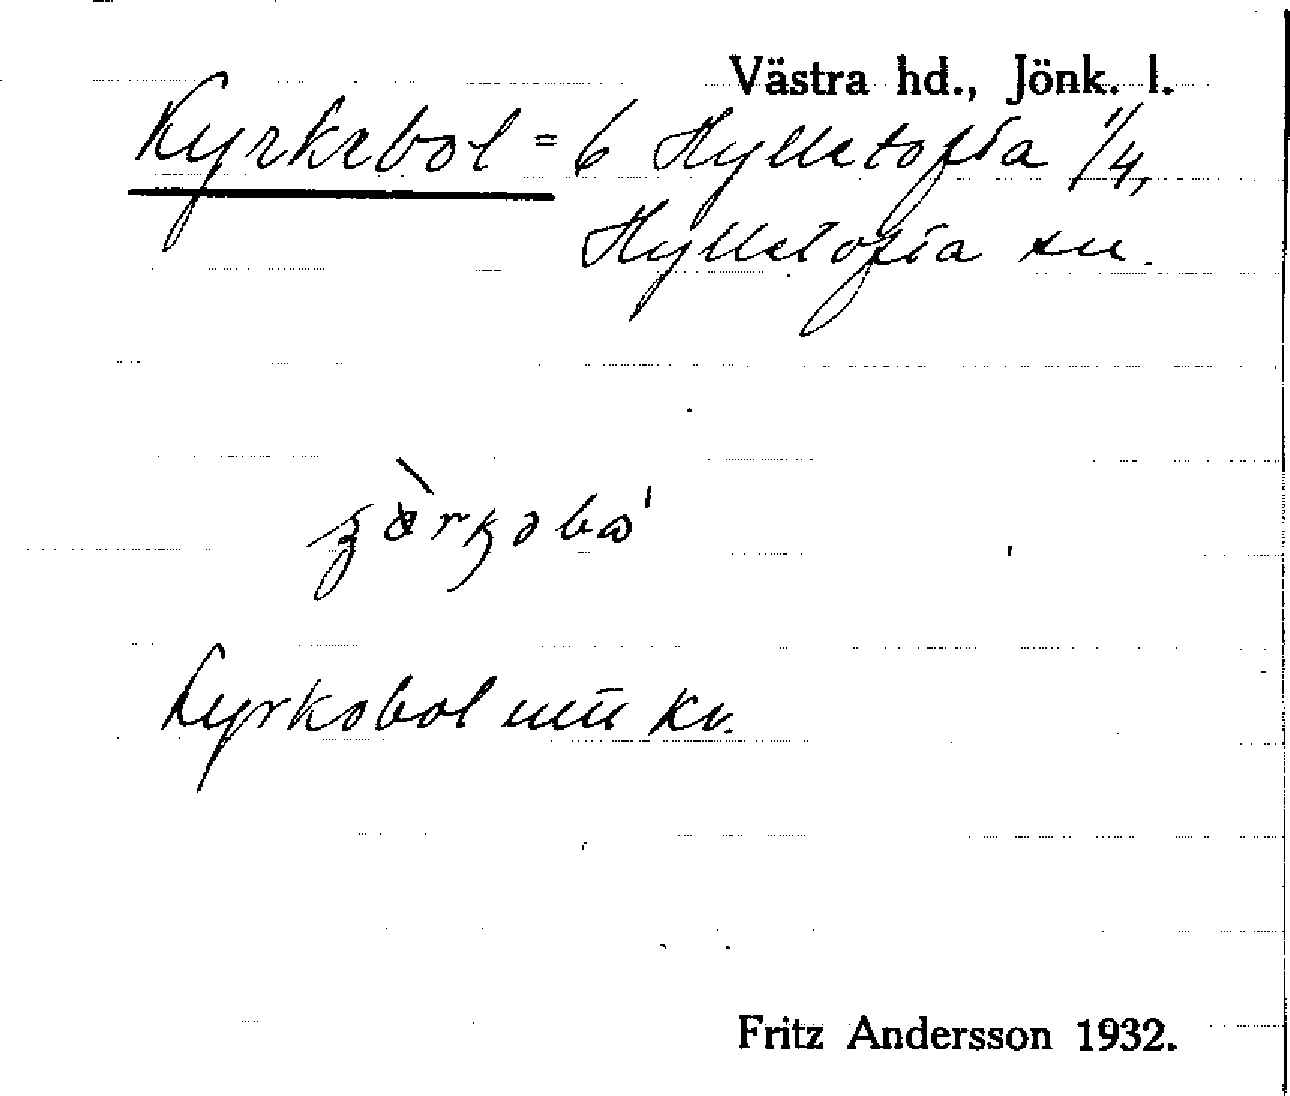 Västra hd., Jönk. l.
Kyrkebol = 6 Hylletofta 1/4,
Hylletofta sn.
Kyrkobol kv.
Fritz Andersson 1932.